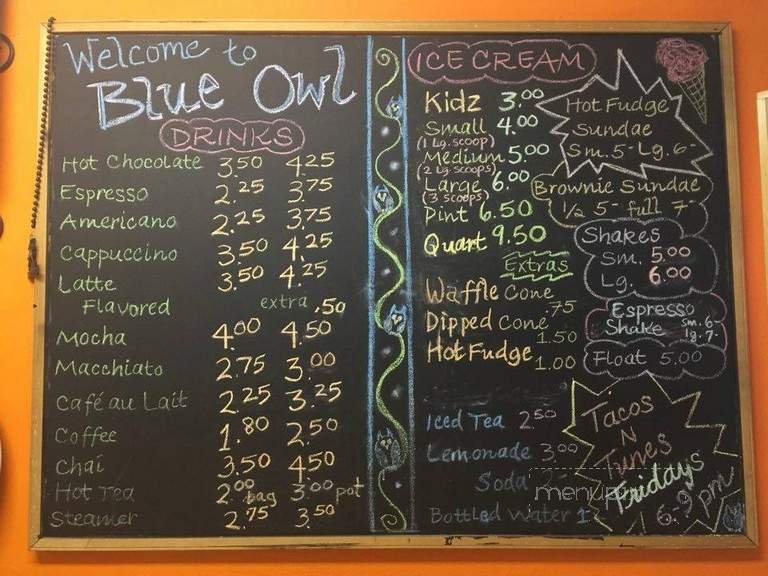 Welcome to
Blue Owl
DRINKS
Hot Chocolate 3.50 4.25
Espresso 2.25 3.75
Americano 2.25 3.75
Cappuccino 3.50 4.25
Latte 3.50 4.25
Flavored extra .50
Mocha 4.00 4.50
Macchiato 2.75 3.00
Café au Lait 2.25 3.25
Coffee 1.80 2.50
Chai 3.50 4.50
Hot Tea 2.00 bag 3.00 pot
Steamer 2.75 3.50
ICE CREAM
Kidz 3.00
Small 4.00
(1 Lg. scoop)
Medium 5.00
(2 Lg. scoops)
Large 6.00
(3 scoops)
Pint 6.50
Quart 9.50
Extras
Waffle Cone .75
Dipped Cone 1.50
Hot Fudge 1.00
Iced Tea 2.50
Lemonade 3.00
Soda
Bottled Water 1
Hot Fudge
Sundae
Sm. 5- Lg. 6-
Brownie Sundae
1/2 5- full 7-
Shakes
Sm. 5.00
Lg. 6.00
Espresso
Shake sm. 6-
lg. 7-
Float 5.00
Tacos
N
Tunes
Fridays
6-9 pm